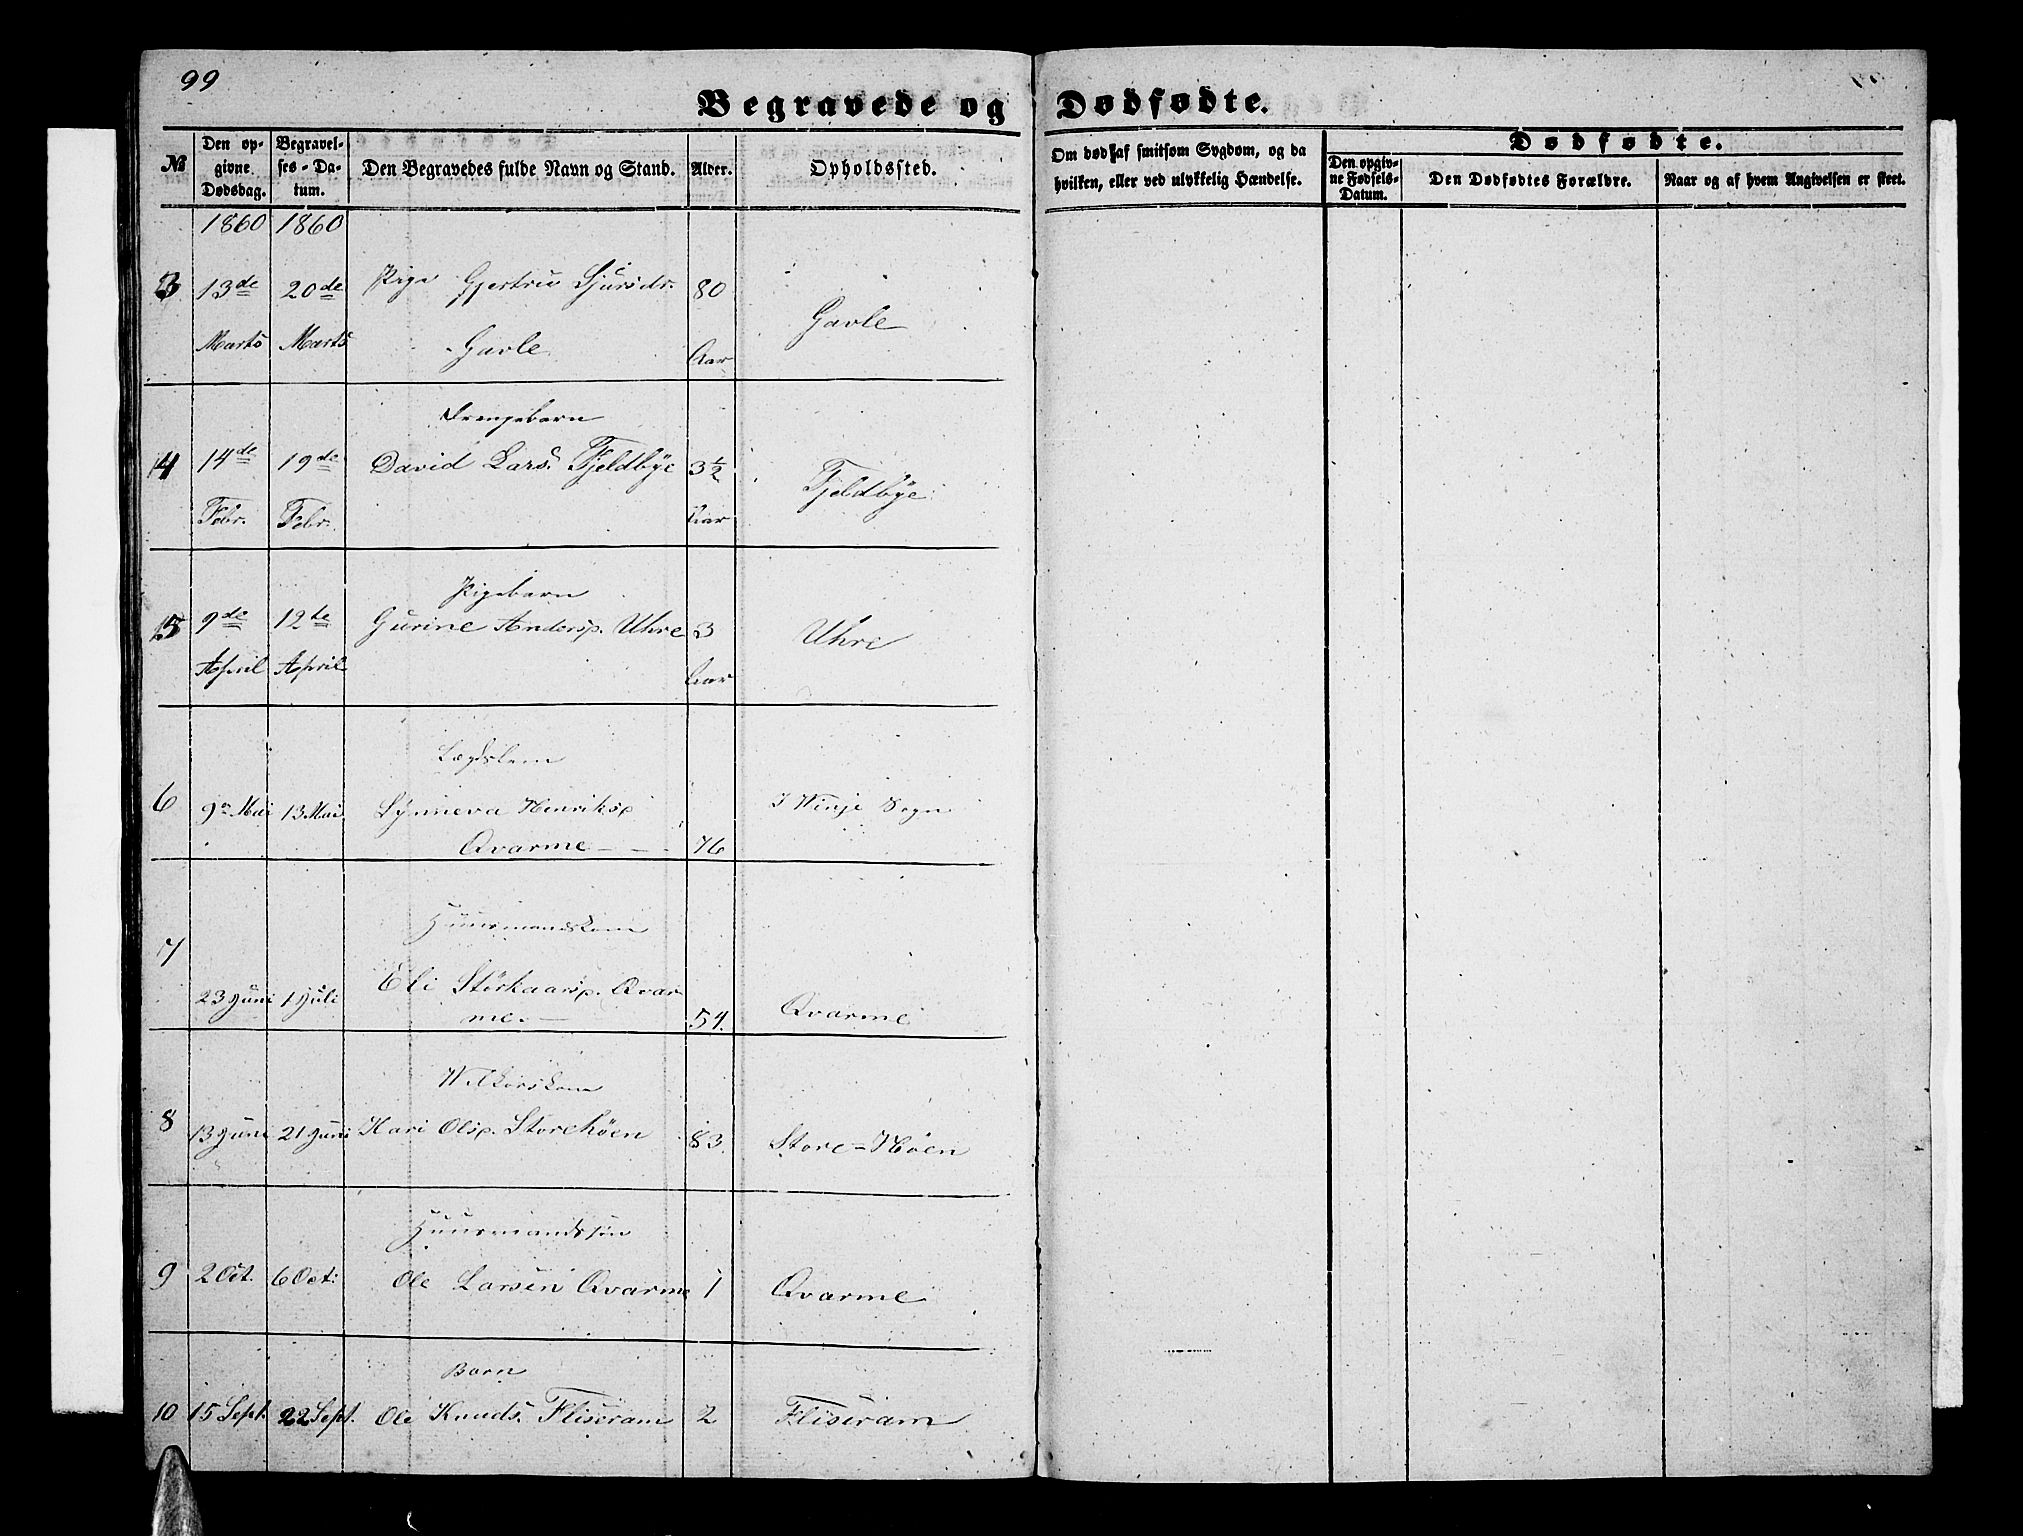 99
Begravede og Dødfødte.
№ Den opgivne Dødsdag. Begravelses-Datum. Den Begravedes fulde Navn og Stand. Alder. Opholdssted. Om død af smitsom Sygdom, og da hvilken, eller ved ulykkelig Hændelse.
Dødfødte.
Den opgivne Fødsels-Datum. Den Dødfødtes Forældre. Naar og af hvem Angivelsen er skeet.
1860 1860
3 13de 20de Pige Gjertrud Sjursdr. 80
Marts Marts Gavle Aar Gavle
Drengebarn
4 14de 19de David Lars. Fjeldbye 3½ Fjeldbye
Febr. Febr. Aar
Pigebarn
5 9de 12te Gurine Andersd. Uhre 3 Uhre
April April Aar
Lægdslem
6 9de Mai 13 Mai Synneva Henriksd I Winje Sogn
Qvarme 76
Huusmandskone
7 23 Juni 1 Juli Eli Störkaarsd. Qvar
me. 54. Qvarme
Wilkorskone
8 13 Juni 21 Juni Kari Olsd. Storehöen 83. Store-Höen
Huusmandssön
9 2 Oct. 6 Oct: Ole Larsen Qvarme 1 Qvarme
Barn
10 15 Sept. 22 Sept. Ole Knuds. Fliseram 2 Fliseram